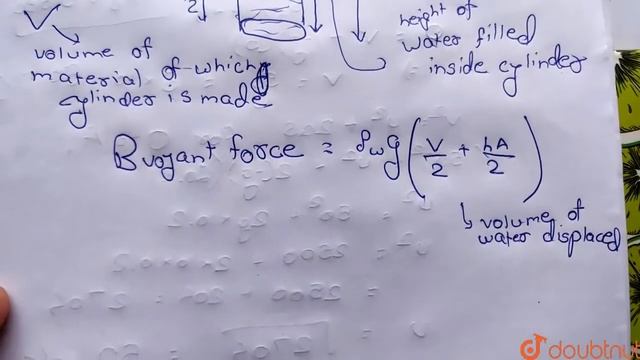 2
height of
water filled
inside cylinder
V
volume of
material of which
cylinder is made
Buoyant force = ρwg(V/2 + hA/2)
volume of
water displaced
doubtnut